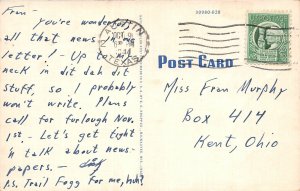 Fran-
you're wonderful!
all that news in one
letter! Up to
neck in dit dah dit
stuff, so I probably
won't write. Plans
call for furlough Nov.
1st- Let's get tight
'n talk about news-
papers. -
P.S. Trail Fogg for me, huh?
AUSTIN
OCT
TEXAS
POST CARD
Miss Fran Murphy
Box 414
Kent, Ohio